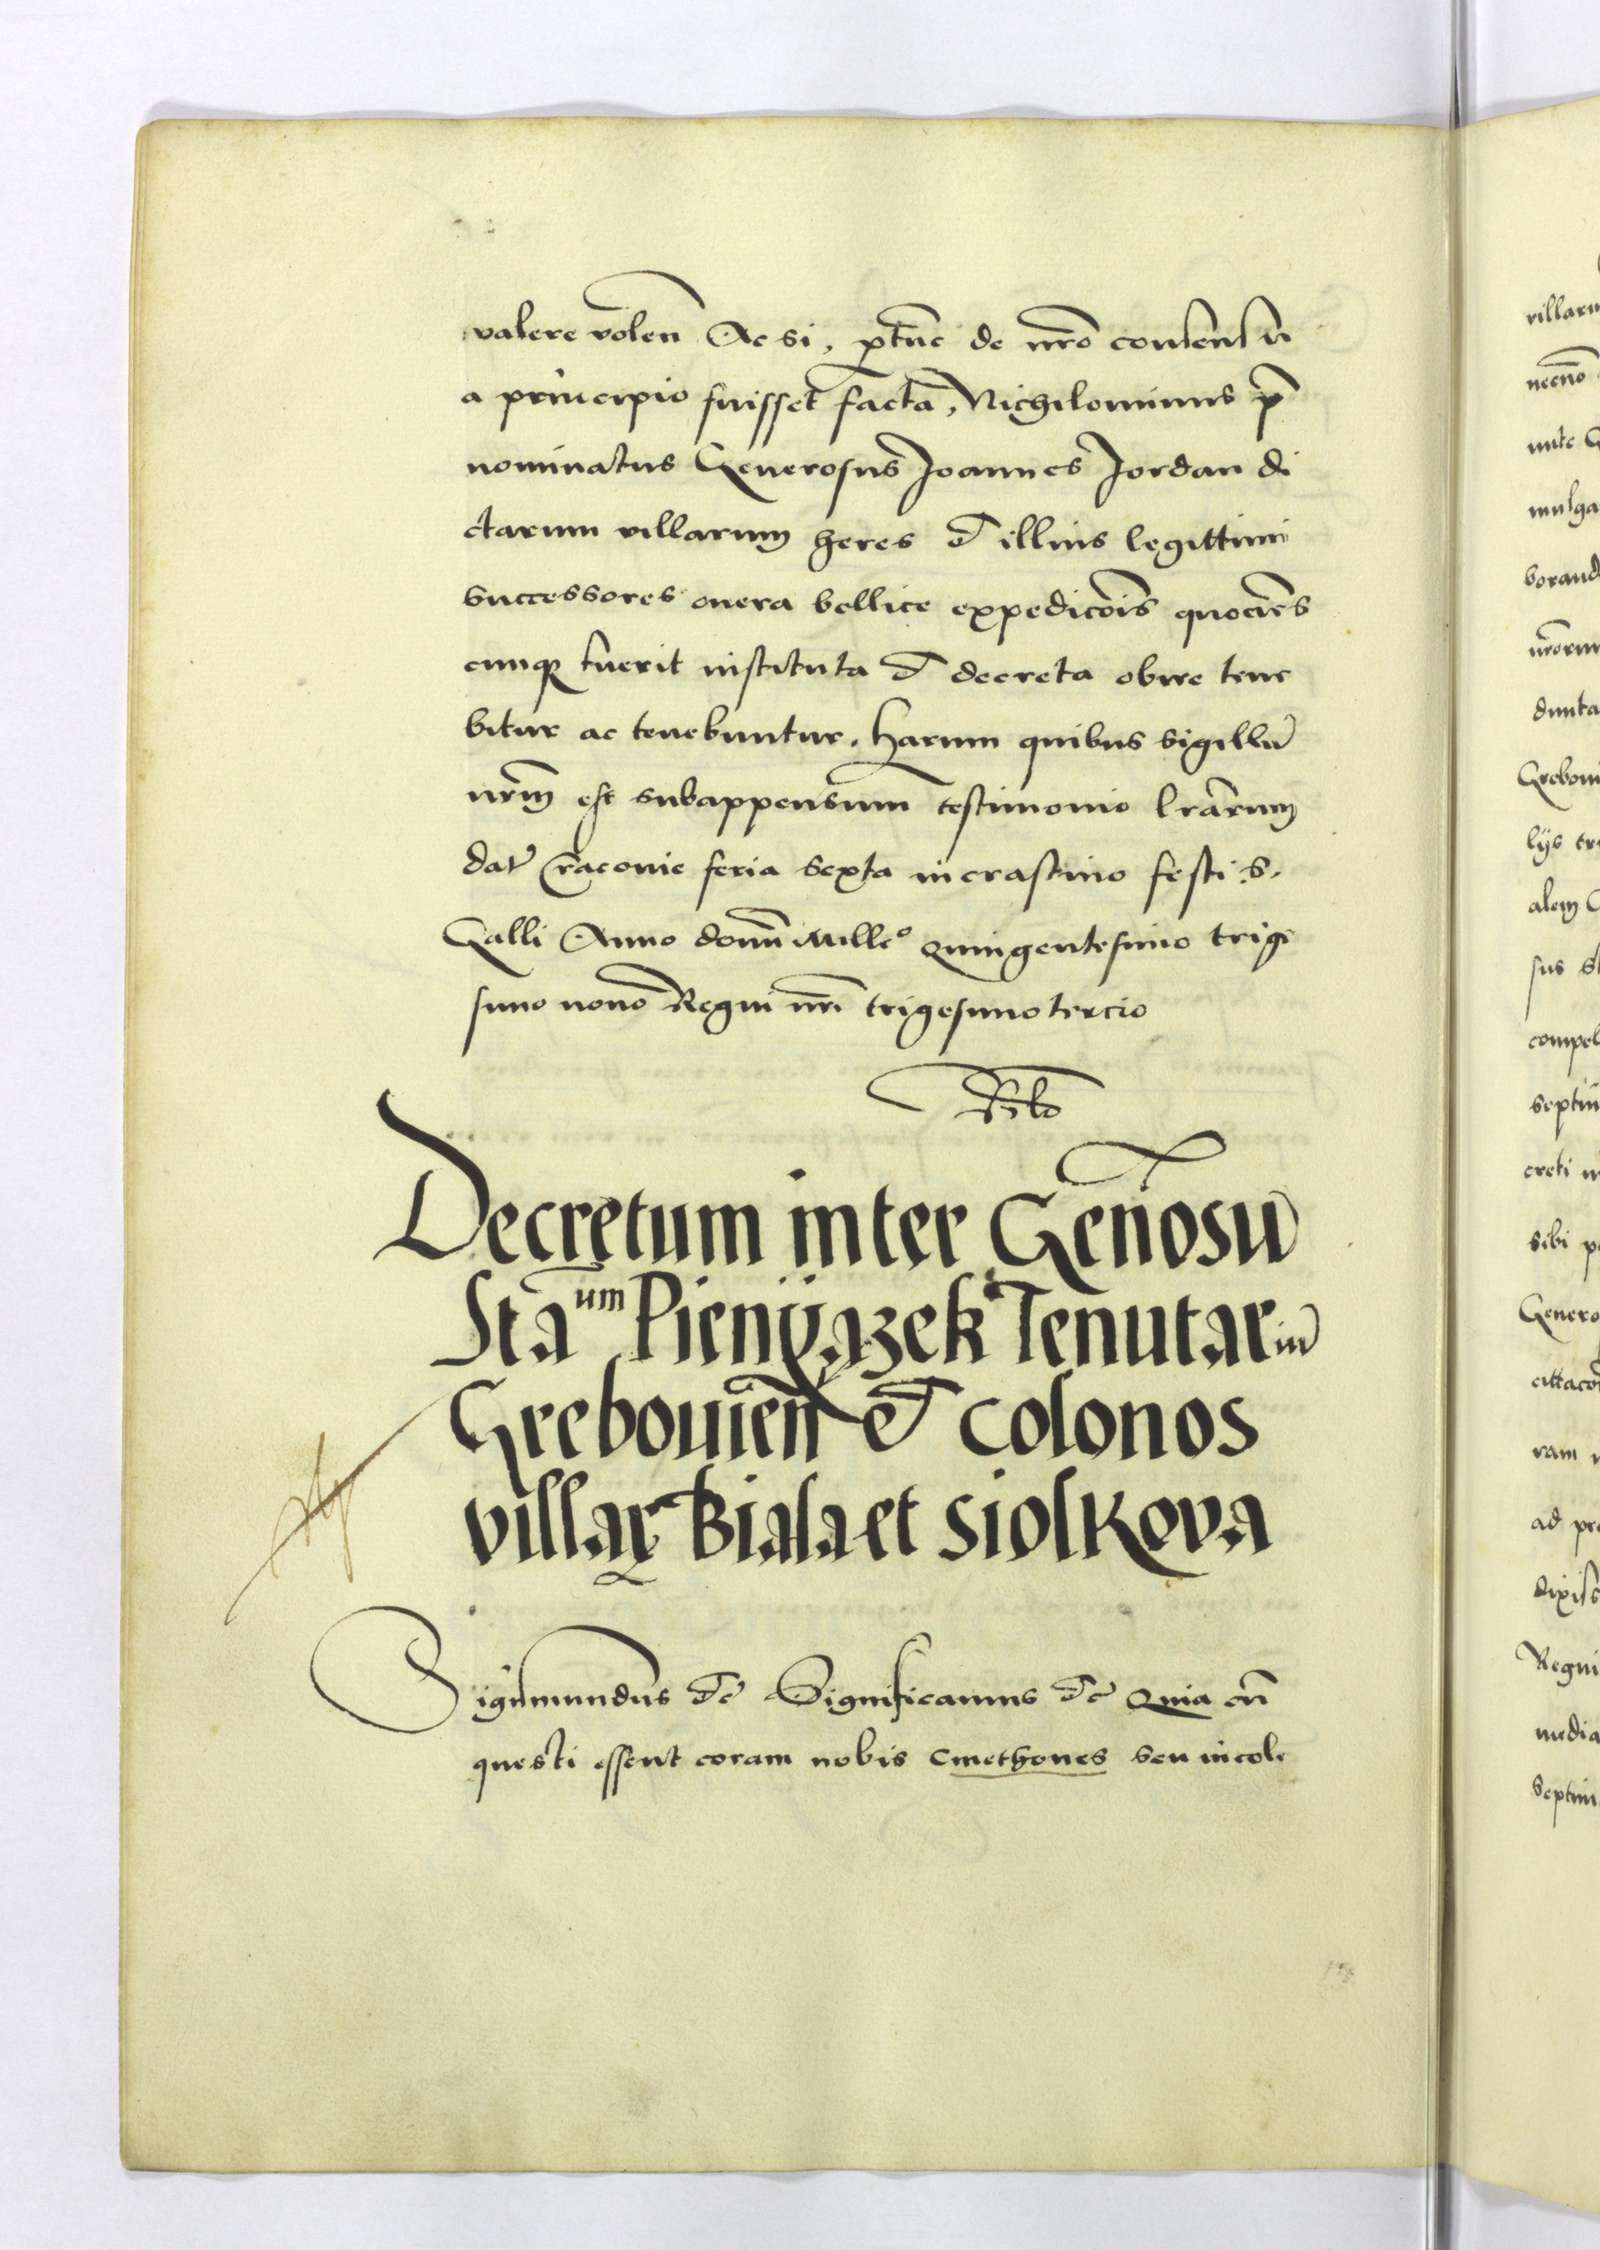 valere volen̄ Ac si, p̄tunc de nr̄o consensu
a principio fuisset facta, Nichilominus p̄
nominatus Generosus Joannes Jordan di
ctarum villarum heres et illius legittimi
successores onera bellice expedicōis quociens
cunqꝫ fuerit instituta et decreta obire tene
bitur ac tenebuntur. Harum quibus sigillū
nr̄m est subappensum testimonio lrārum
dat̄ Cracovie feria sexta in crastino festi S.
Galli Anno domī Milleᵒ quingentesimo trige
simo nono Regni nrī trigesimo tercio
Decretum inter Genosū
Staᵘᵐ Pienijązek Tenutariū
Grebovien̄ et colonos
villarꝝ Biala et Siolkova
Sigismundus etc Significamus etc Quia cū
questi essent coram nobis cmethones seu incole
villaru
necnō
nte G
mulga
borand
nrōrum
dunta
Grebovi
lijs tr
alem C
sus St
compel
septim
creti n
sibi p
Genero
cittacō
ram n
ad pr
dixiss
Regni
media
Septim